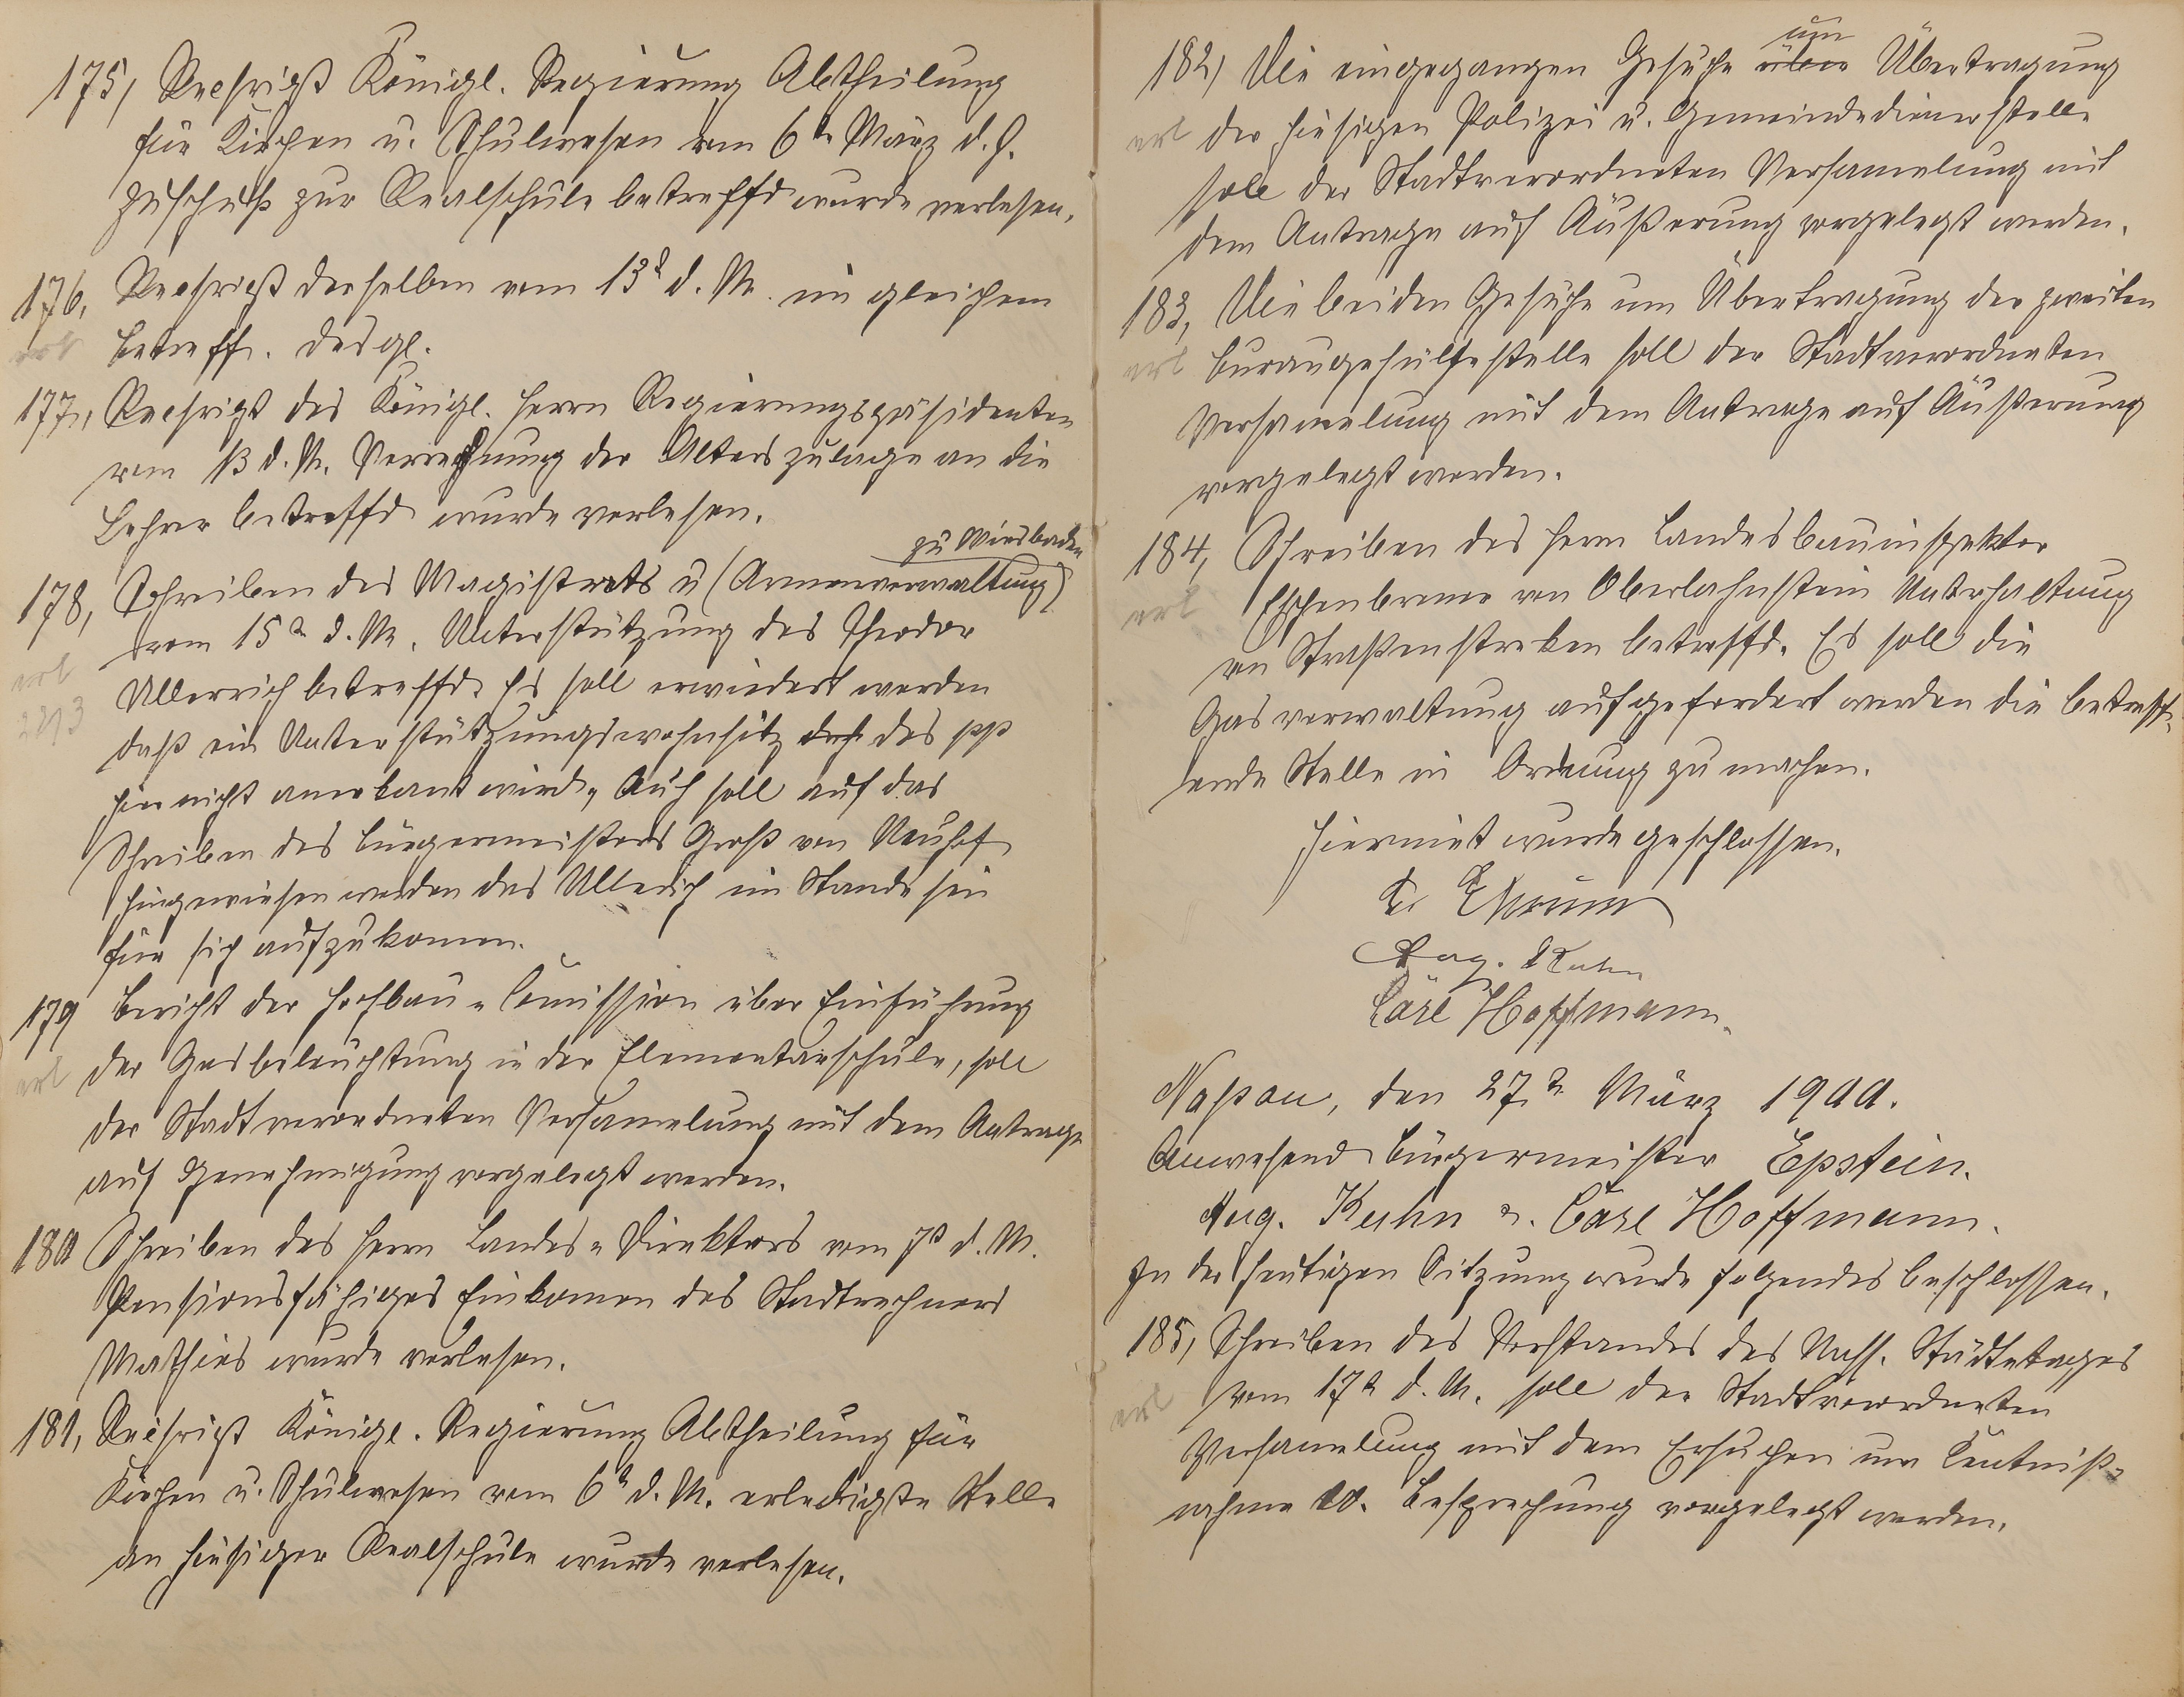 175, Rescript Königl. Regierung Abtheilung
für Kirchen u. Schulwesen vom 6tn März d. J.
Zuschuß zur Realschule betreffd wurde verlesen.
176, Rescript derselben vom 13t d. M. im gleichem
erl Betreff. desgl.
177, Rescript des Königl. Herrn Regierungspräsidenten
vom 13 d. M. Verrechnung der Alterszulage an die
Lehrer betreffd wurde verlesen.
zu Wiesbaden
178, Schreiben des Magistrats u (Armenverwaltung)
vom 15tn d. M. Unterstützung des Theodor
erl Ullerich betreffd. Es soll erwiedert werden
22/3 daß ein Unterstützungswohnsitz des pp
hier nicht anerkant wird, Auch soll auf das
Schreiben des Bürgermeisters Groß von Neuhof
hingewiesen werden das Ullerich im Stande sei
für sich aufzukomen.
179 Bericht der Hochbau-Comission über Einführung
erl der Gasbeleuchtung in der Elementarschule, soll
der Stadtverordneten Versamelung mit dem Antrage
auf Genehmigung vorgelegt werden.
180 Schreiben des Herrn Landes-Direktors vom 7t d. M.
Pensionsfähiges Einkomen des Stadtrechners
Mathies wurde verlesen.
181, Rescript Königl. Regierung Abtheilung für
Kirchen u. Schulwesen vom 6t d. M. erledigte Stelle
an hiesiger Realschule wurde verlesen.
um
182, Die eingegangen Gesuche über Übertragung
erl der hiesigen Polizei u. Gemeindedienerstelle
soll der Stadtverordneten Versamelung mit
dem Antrage auf Äußerung vorgelegt werden.
183, Die beiden Gesuche um Übertragung der zweiten
erl Bureaugehülfestelle soll der Stadtverordneten
Versamelung mit dem Antrage auf Äußerung
vorgelegt werden.
184, Schreiben des Herrn Landesbauinspektor
erl Eschenbrener von Oberlahnstein Unterhaltung
von Straßenstreken betreffd. Es soll die
Gasverwaltung aufgefordert werden die betreff-
ende Stelle in Ordnung zu machen.
Hiermit wurde geschlossen.
Aug. Kuhn
Carl Hoffmann.
Nassau, den 27tn März 1900.
Anwesend Bürgermeister Epstein.
Aug. Kuhn u. Carl Hoffmann.
In der heutigen Sitzung wurde folgendes beschlossen.
185, Schreiben des Vorstandes des Nass. Städtetages
erl vom 17tn d. M. soll der Stadtverordneten
Versamelung mit dem Ersuchen um Kentniß-
nahme Besprechung vorgelegt werden.